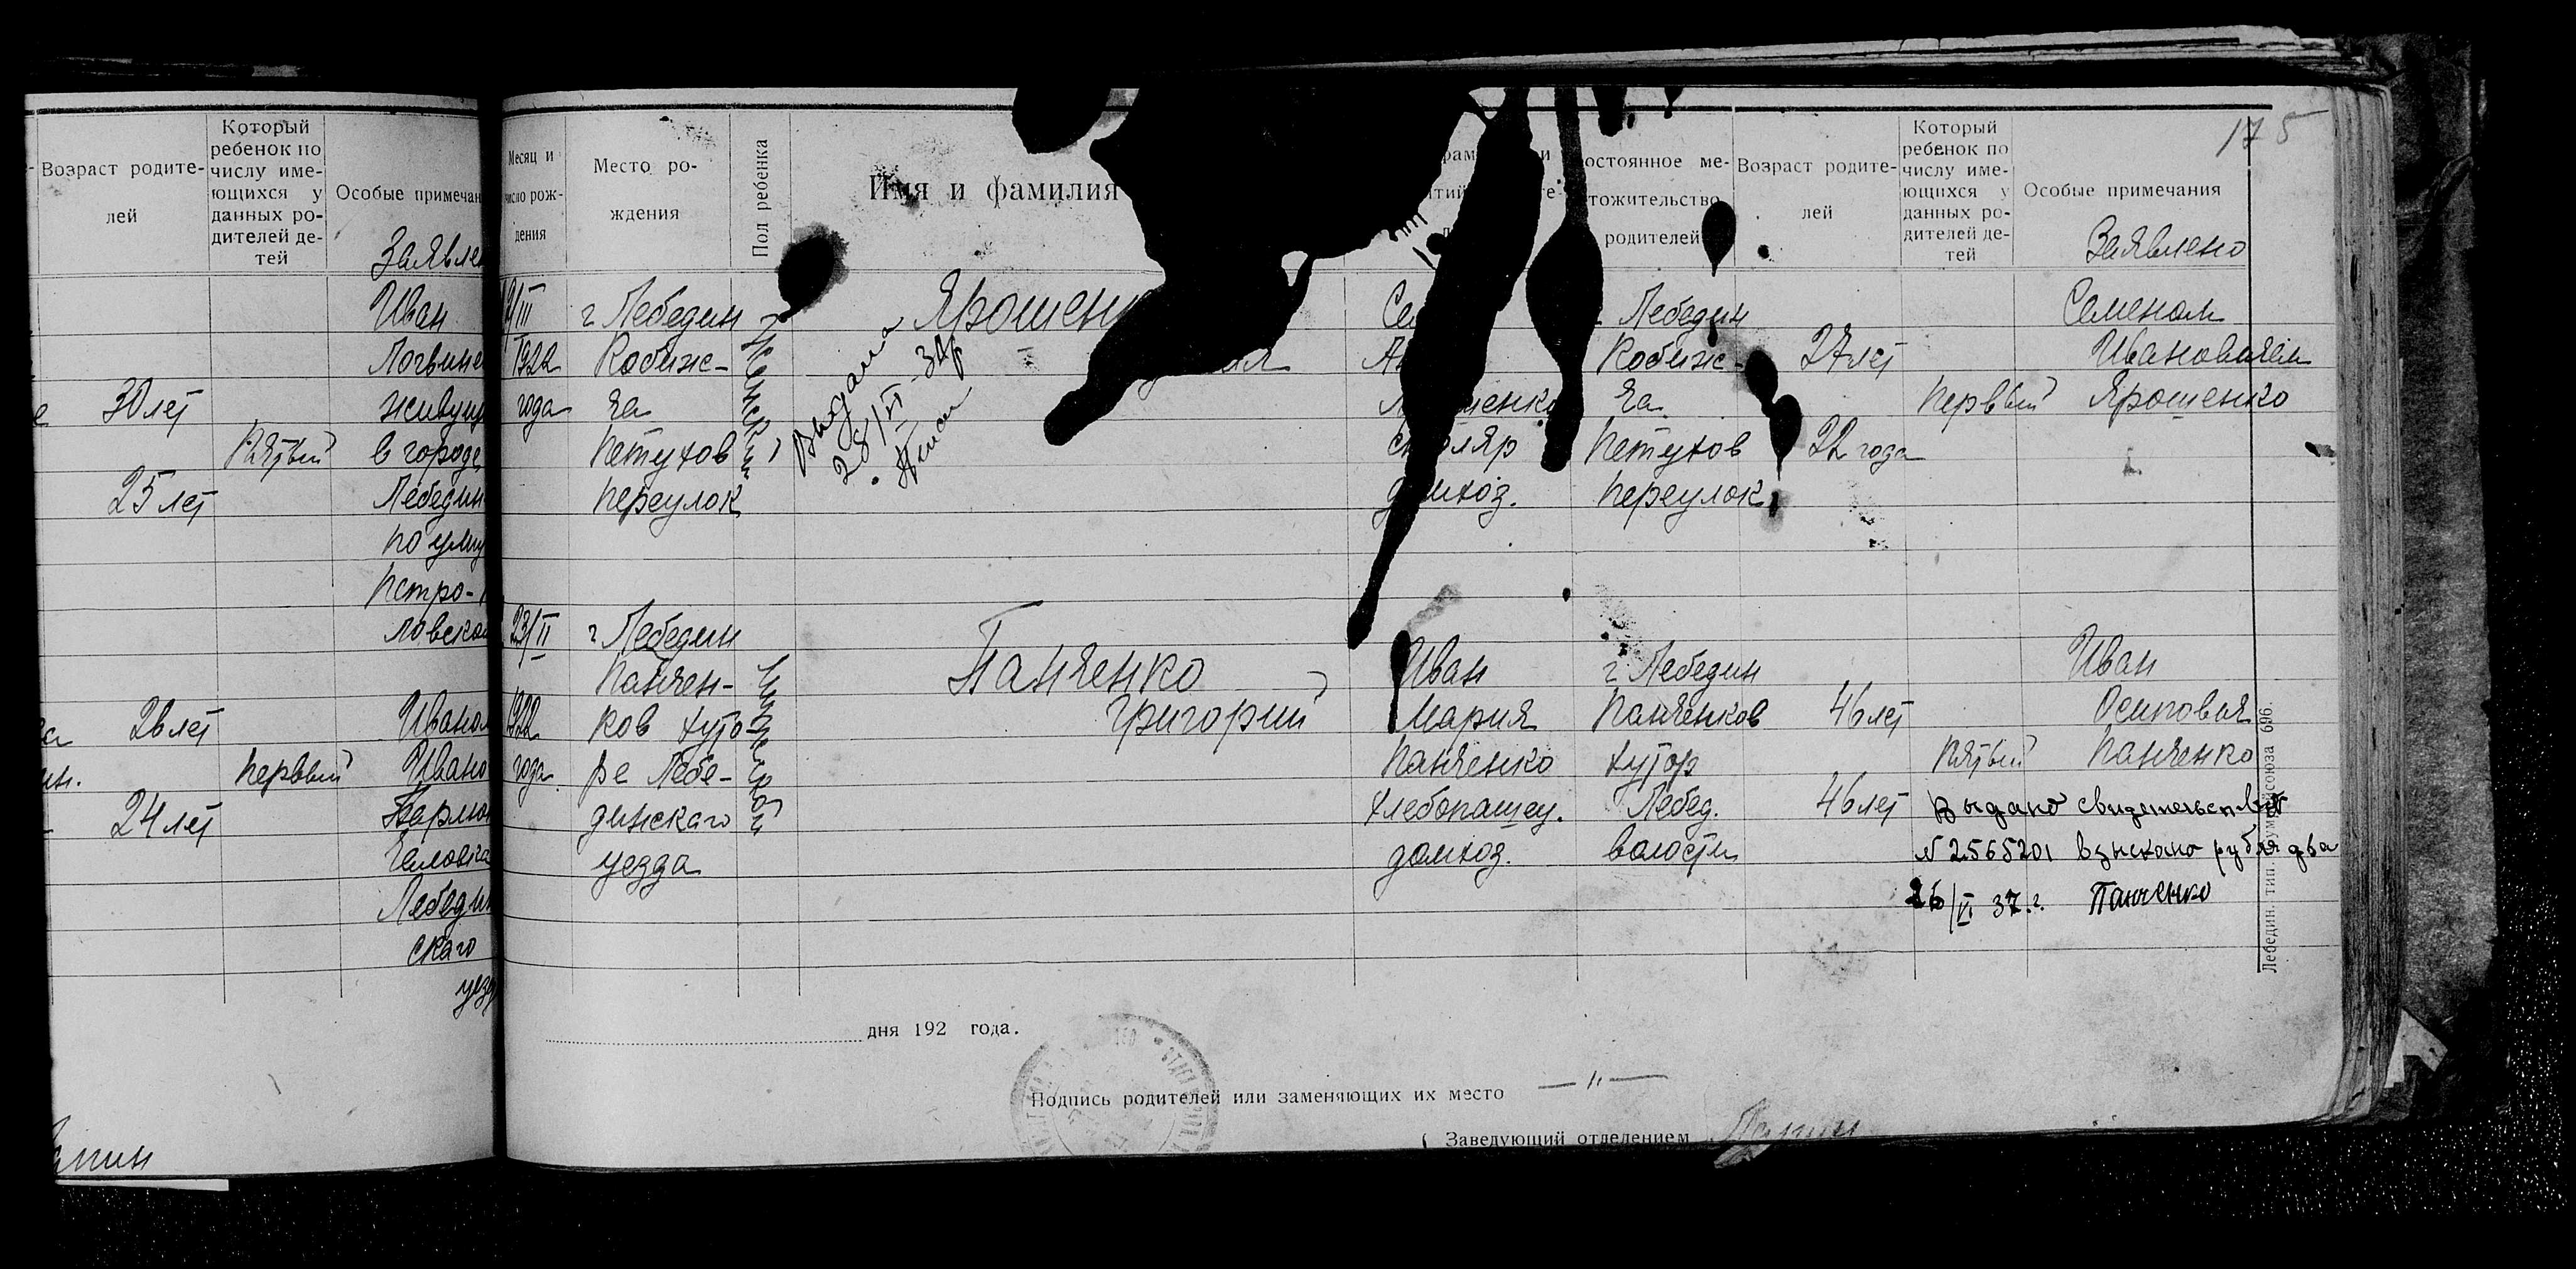 Возраст родите-
лей
Который
ребенок по
числу име-
ющихся у
данных ро-
дителей де-
тей
Особые примечан
Заявле
Иван
Логвине
30 лет
живущ
Пятый
в городе
25 лет
Лебедин
по улиц
Петро-
ловской
26 лет
Иваном
первый
Ивано
24 лет
Лебедин
скаго
уезд
Месяц и
число рож-
дения
Место ро-
ждения
Пол ребенка
Имя и фамилия
остоянное ме-
тожительство
родителей
Возраст родите-
лей
Который
ребенок по
числу име-
ющихся у
данных ро-
дителей де-
тей
Особые примечания
Заявлено
175
/III
1922
года
г Лебедин
Кобиж-
ча
Петухов
переулок
Женский
Выдана
28/VI-34г
Ярошен
Се
А
шенко
столяр
домхоз.
Лебедин
Кобиж-
ча
Петухов
переулок
27 лет
22 года
первый
Семеном
Ивановичем
Ярошенко
23/II
1922
года
г Лебедин
Панчен-
ков хуто-
ре Лебе-
динскаго
уезда
Мужской
Панченко
Григорий
Иван
Мария
Панченко
хлебопашец.
домхоз.
г Лебедин
Панченков
хутор
Лебед.
волости
46 лет
46 лет
Пятый
Иван
Осипович
Панченко
Выдано свидетельство
N 2565201 взыскано рубля два
26/VI 37.г. Панченко
Лебедин. тип.
союза 696.
дня 192 года.
Подпись родителей или заменяющих их место —〃—
Заведующий отделением